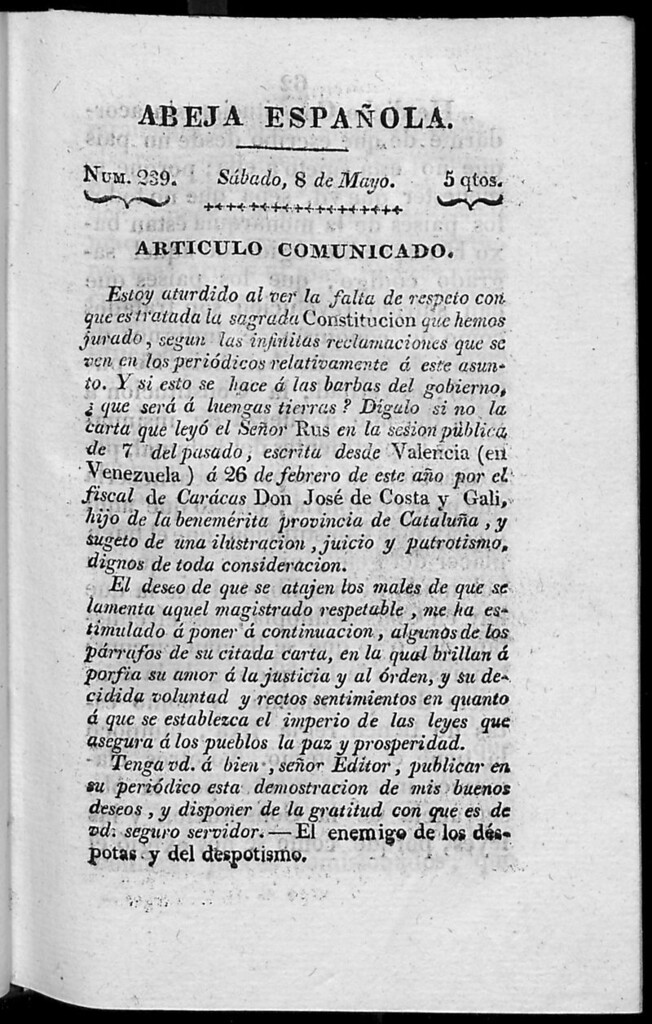 ABEJA ESPAÑOLA.
NUM. 239. Sábado, 8 de Mayo. 5 qtos.
ARTICULO COMUNICADO.
Estoy aturdido al ver la falta de respeto con
que es tratada la sagrada Constitucion que hemos
jurado, segun las infinitas reclamaciones que se
ven en los periódicos relativamente á este asun-
to. Y si esto se hace á las barbas del gobierno,
¿ que será á luengas tierras? Dígalo si no la
carta que leyó el Señor Rus en la sesion pública
de 7 del pasado, escrita desde Valencia (en
Venezuela) á 26 de febrero de este año por el
fiscal de Carácas Don José de Costa y Gali,
hijo de la benemérita provincia de Cataluña, y
sugeto de una ilustracion, juicio y patrotismo,
dignos de toda consideracion.
El deseo de que se atajen los males de que se
lamenta aquel magistrado respetable, me ha es-
timulado á poner á continuacion, algunos de los
párrafos de su citada carta, en la qual brillan á
porfia su amor á la justicia y al órden, y su de-
cidida voluntad y rectos sentimientos en quanto
á que se establezca el imperio de las leyes que
asegura á los pueblos la paz y prosperidad.
Tenga vd. á bien, señor Editor, publicar en
su periódico esta demostracion de mis buenos
deseos, y disponer de la gratitud con que es de
vd. seguro servidor.—El enemigo de los dés-
potas y del despotismo.